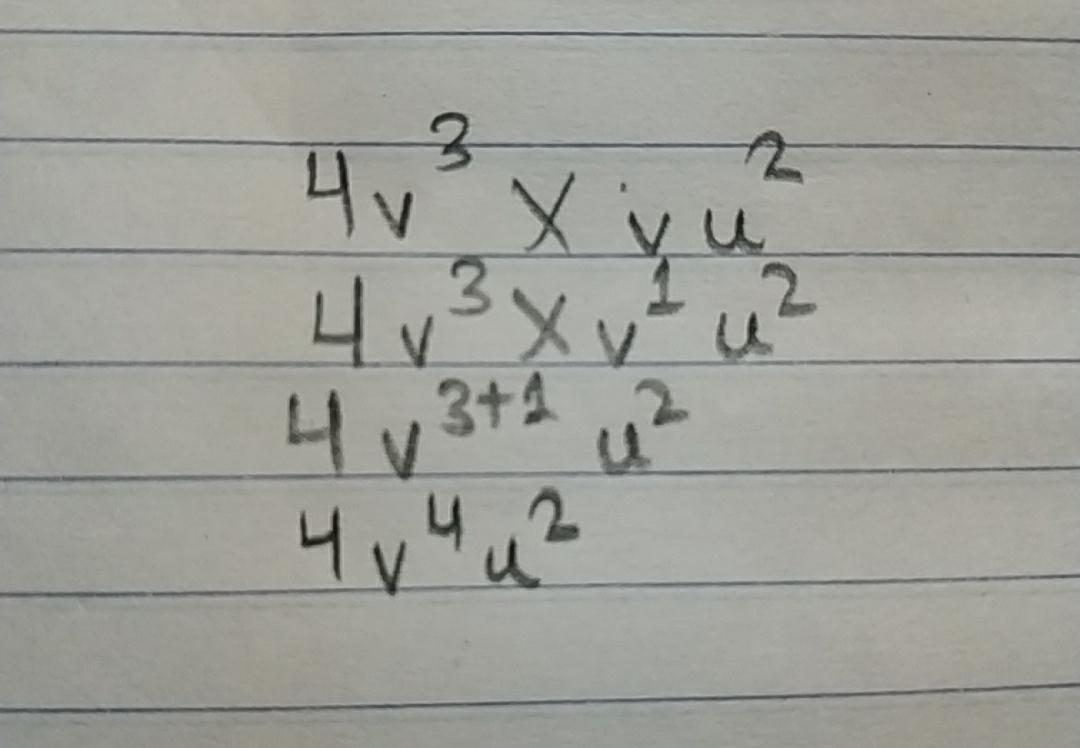 4v³ × vu²
4v³ × v¹ u²
4v³⁺¹ u²
4v⁴u²